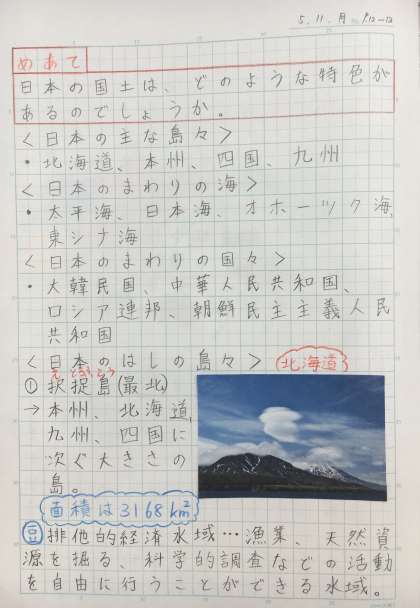 5.11.月 P12-13
めあて
日本の国土は、どのような特色が
あるのでしょうか。
<日本の主な島々>
・北海道、本州、四国、九州
<日本のまわりの海>
・太平海、日本海、オホーツク海、
東シナ海
<日本のまわりの国々>
・大韓民国、中華人民共和国、
ロシア連邦、朝鮮民主主義人民
共和国
<日本のはしの島々> 北海道
えとろふとう
①択捉島(最北)
→本州、北海道、
九州、四国に
次ぐ大きさの
島。
面積は3168km²
豆 排他的経済水域…漁業、天然資
源を掘る、科学的調査などの活動
を自由に行うことができる水域。